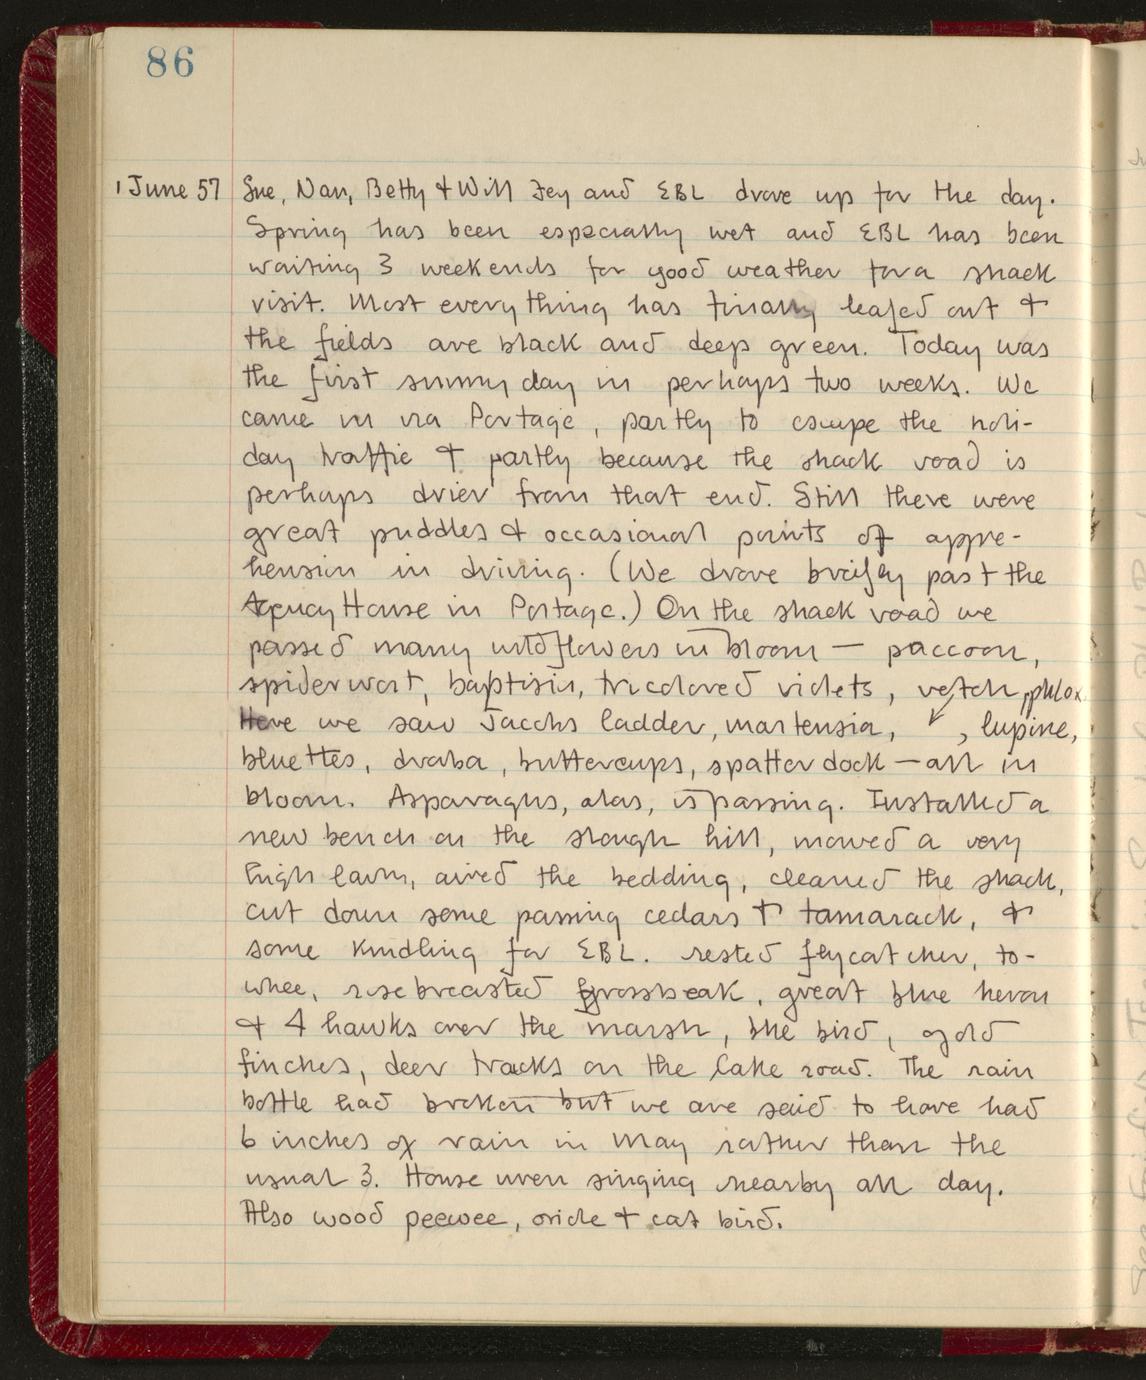 86
1 June 57 Sue, Nan, Betty & Will Fey and EBL drove up for the day.
Spring has been especially wet and EBL has been
waiting 3 weekends for good weather for a shack
visit. Most everything has finally leafed out &
the fields are black and deep green. Today was
the first sunny day in perhaps two weeks. We
came in via Portage, partly to escape the holi-
day traffic & partly because the shack road is
perhaps drier from that end. Still there were
great puddles & occasional points of appre-
hension in driving. (We drove briefly past the
Agency House in Portage.) On the shack road we
passed many wildflowers in bloom — puccoon,
spiderwort, baptisia, tricolored violets, vetch, phlox
Here we saw Jacobs ladder, martensia, , lupine,
bluettes, draba, buttercups, spatter dock — all in
bloom. Asparagus, alas, is passing. Installed a
new bench on the slough hill, mowed a very
high lawn, aired the bedding, cleaned the shack,
cut down some passing cedars & tamarack, &
some kindling for EBL. rested flycatcher, to-
whee, rosebreasted grossbeak, great blue heron
& 4 hawks over the marsh, blue bird, gold
finches, deer tracks on the lake road. The rain
bottle had broken but we are said to have had
6 inches of rain in May rather than the
usual 3. House wren singing nearby all day.
Also wood peewee, oriole & cat bird.